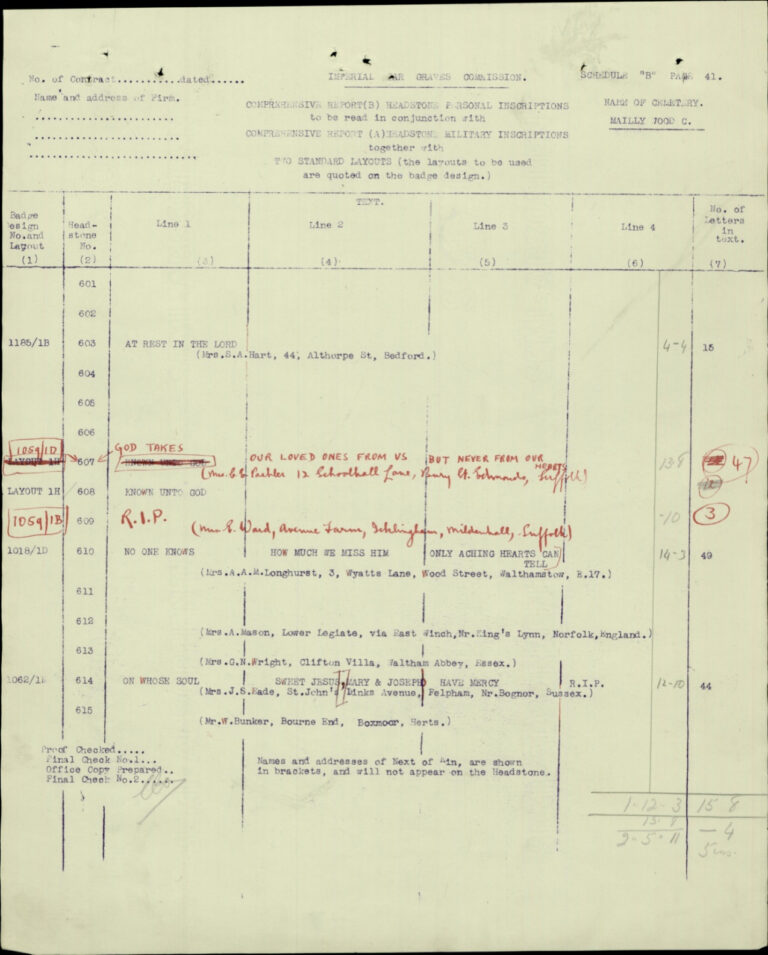 No. of Contract...........dated...... IMPERIAL WAR GRAVES COMMISSION. SCHEDULE "B" PAGE 41.
Name and address of Firm. NAME OF CEMETERY.
COMPREHENSIVE REPORT(B) HEADSTONE PERSONAL INSCRIPTIONS
to be read in conjunction with MAILLY WOOD C.
COMPREHENSIVE REPORT (A)HEADSTONE MILITARY INSCRIPTIONS
together with
TWO STANDARD LAYOUTS (the layouts to be used
are quoted on the badge design.)
TEXT.
Badge Design No.and Layout Head-stone No. Line 1 Line 2 Line 3 Line 4 No. of Letters in text.
(1) (2) (3) (4) (5) (6) (7)
601
602
1185/1B 603 AT REST IN THE LORD 4-4 15
(Mrs.S.A.Hart, 44, Althorpe St, Bedford.)
604
605
606
1059/1D GOD TAKES OUR LOVED ONES FROM US BUT NEVER FROM OUR HEARTS
LAYOUT 1H 607 KNOWN UNTO GOD 13-8 47
12 Schoolhall Lane, Bury St. Edmonds, Suffolk)
LAYOUT 1H 608 KNOWN UNTO GOD 12
1059/1B 609 R.I.P. -10 3
(Mrs E. Ward, Avenue Farm, Icklingham, Mildenhall, Suffolk)
1018/1D 610 NO ONE KNOWS HOW MUCH WE MISS HIM ONLY ACHING HEARTS CAN TELL 14-3 49
(Mrs.A.A.M.Longhurst, 3, Wyatts Lane, Wood Street, Walthamstow, E.17.)
611
612
(Mrs.A.Mason, Lower Legiate, via East Winch,Nr.King's Lynn, Norfolk,England.)
613
(Mrs.G.N.Wright, Clifton Villa, Waltham Abbey, Essex.)
614 ON WHOSE SOUL SWEET JESUS,MARY & JOSEPH HAVE MERCY R.I.P. 12-10 44
(Mrs.J.S.Eade, St.John's Links Avenue, Felpham, Nr.Bognor, Sussex.)
615
(Mr.W.Bunker, Bourne End, Boxmoor, Herts.)
Proof Checked.....
Final Check No.1...
Office Copy Prepared..
Final Check No.2......
Names and addresses of Next of Kin, are shown
in brackets, and will not appear on the Headstone.
1-12-3 15 8
13-8 4
2-5-11